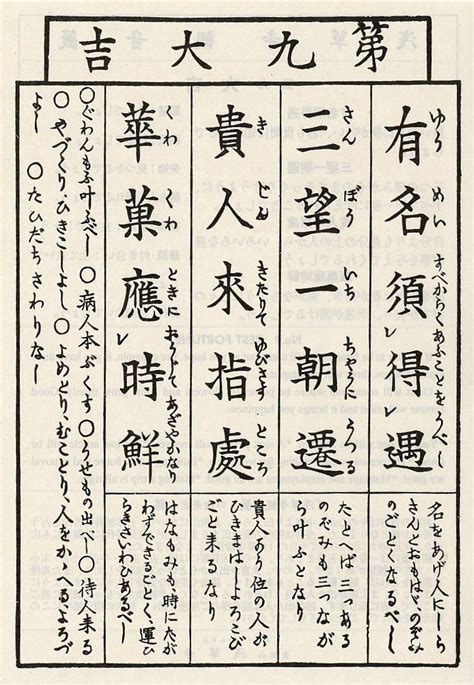 第九大吉
有名須レ得レ遇
ゆう めい すべからくあふことをうべし
名をあげ人にしら
さんとおもはゞのぞみ
のごとくなるべし
三望一朝遷
さん ぼう いち ちょうにうつる
たとへば三つある
のぞみも三つなが
ら叶ふとなり
貴人來指處
き じん きたりて ゆびさす ところ
貴人あり位の人が
はよろこび
ごと来るなり
華菓應レ時鮮
くわ くわ ときに おうじて あざやかなり
はなもみも、時にたが
わずできるごとく、運ひ
らきさいわひあるべし
〇ぐわんもふ叶ふべし 〇病人本ぶくす 〇うせもの出べし 〇待人来る
〇やづくり、ひきこしよし 〇よめとり、むことり、人をかゝへる、よろづ
よし 〇たひだちさわりなし